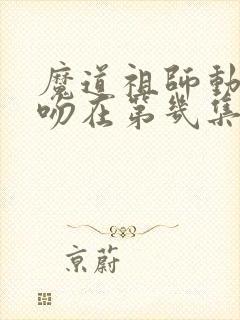 魔道祖師動
吻在第幾集
京蔚